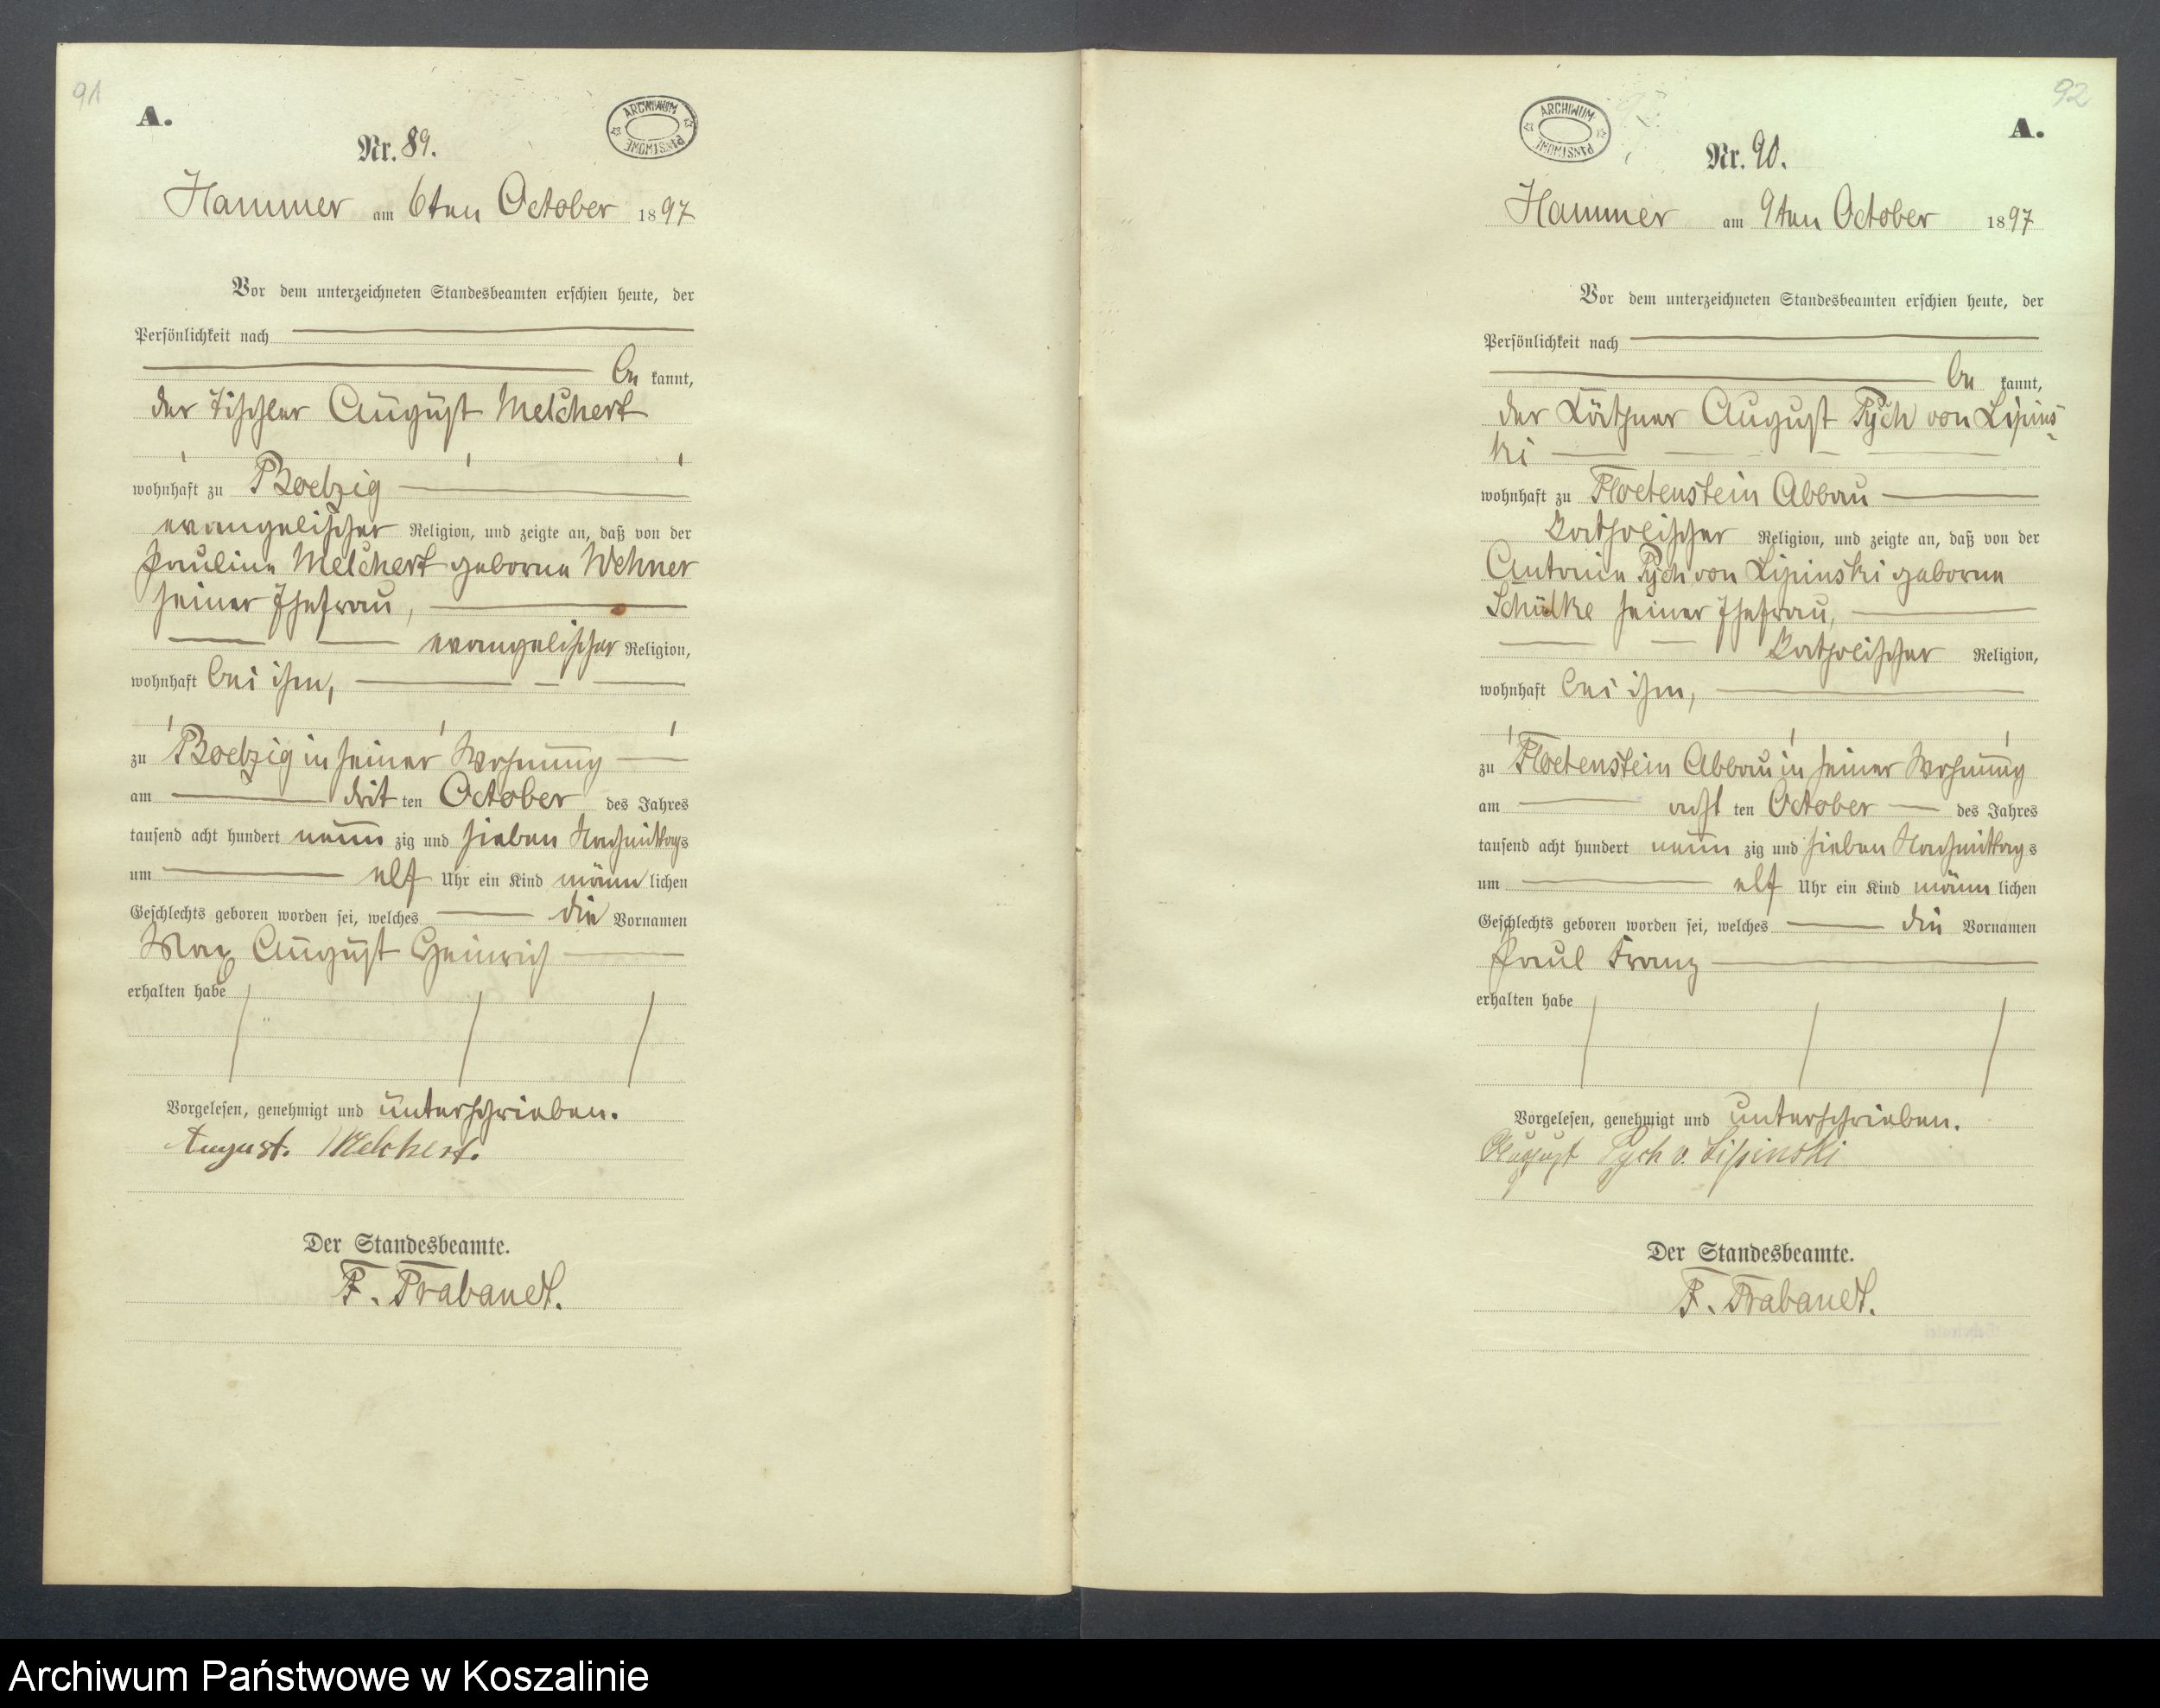 91
A.
ARCHIWUM PAŃSTWOWE
Nr. 89.
Hammer am 6ten October 1897
Vor dem unterzeichneten Standesbeamten erschien heute, der
Persönlichkeit nach
be kannt,
der Tischler August Melchert
wohnhaft zu Roetzig
evangelischer Religion, und zeigte an, daß von der
Pauline Melchert geborne Wehner
seiner Ehefrau,
evangelischer Religion,
wohnhaft bei ihm,
zu Roetzig in seiner Wohnung
am drit ten October des Jahres
tausend acht hundert neun zig und sieben Nachmittags
um elf Uhr ein Kind männ lichen
Geschlechts geboren worden sei, welches die Vornamen
Max August Heinrich
erhalten habe
Vorgelesen, genehmigt und unterschrieben.
August. Melchert.
Der Standesbeamte.
F. Trabandt.
92
A.
ARCHIWUM PAŃSTWOWE
Nr. 90.
Hammer am 9ten October 1897
Vor dem unterzeichneten Standesbeamten erschien heute, der
Persönlichkeit nach
be kannt,
der Käthner August Pych von Lipins-
ki
wohnhaft zu Floetenstein Abbau
katholischer Religion, und zeigte an, daß von der
Antonie Pych von Lipinski geborne
Schülke seiner Ehefrau,
katholischer Religion,
wohnhaft bei ihm,
zu Floetenstein Abbau in seiner Wohnung
am acht ten October des Jahres
tausend acht hundert neun zig und sieben Nachmittag s
um elf Uhr ein Kind männ lichen
Geschlechts geboren worden sei, welches die Vornamen
Paul Franz
erhalten habe
Vorgelesen, genehmigt und unterschrieben.
August Pych v. Lipinski
Der Standesbeamte.
F. Trabandt.
Archiwum Państwowe w Koszalinie